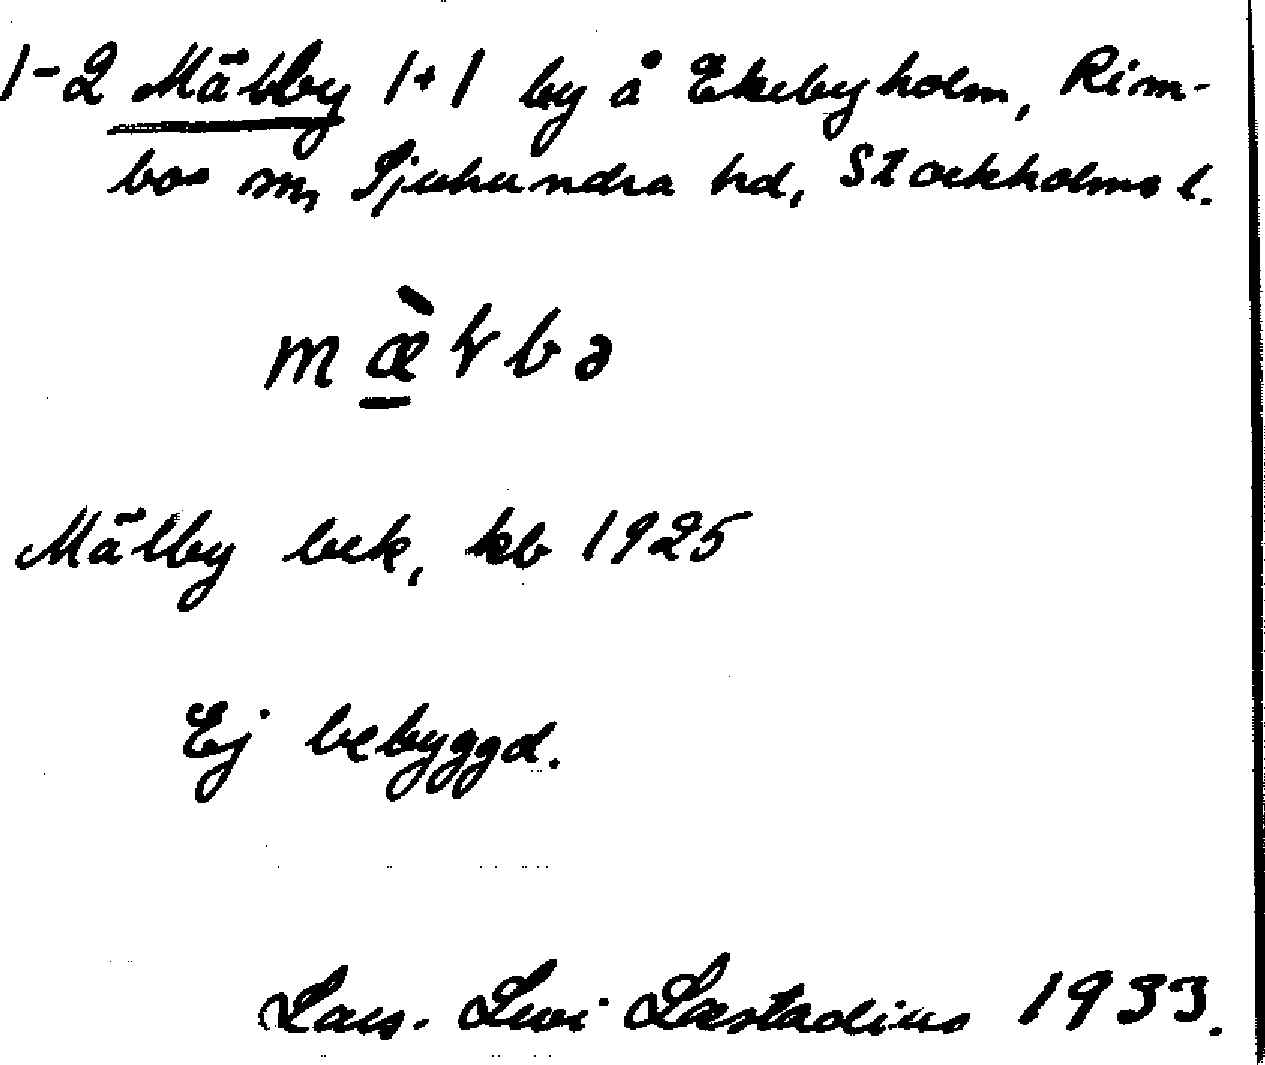 1-2 Mälby 1+1 by å Ekebyholm, Rim-
bo sn, Sjuhundra hd, Stockholms l.
mæ̀ɽbə
Mälby bek, kb 1925
Ej bebyggd.
Lars-Levi Læstadius 1933.